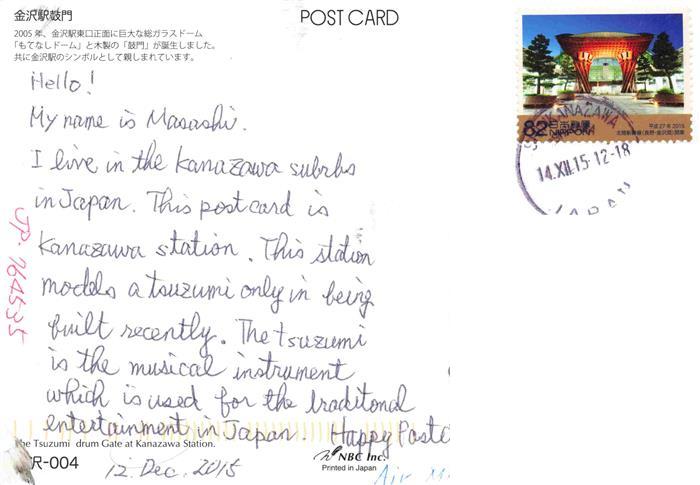 金沢駅鼓門
2005年、金沢駅東口正面に巨大な総ガラスドーム
「もてなしドーム」と木製の「鼓門」が誕生しました。
共に金沢駅のシンボルとして親しまれています。
POST CARD
82 日本郵便
NIPPON
平成27年 2015
北陸新幹線(長野・金沢間)開業
KANAZAWA
14.XII.15-12-18
JAPAN
Hello!
My name is Masashi.
I live in the Kanazawa subrbs
in Japan. This postcard is
Kanazawa station. This station
models a tsuzumi only in being
built recently. The tsuzumi
is the musical instrument
which is used for the traditonal
entertainment in Japan. Happy Postc
JP-764535
The Tsuzumi drum Gate at Kanazawa Station.
R-004
12. Dec. 2015
NBC Inc.
Printed in Japan
Air M